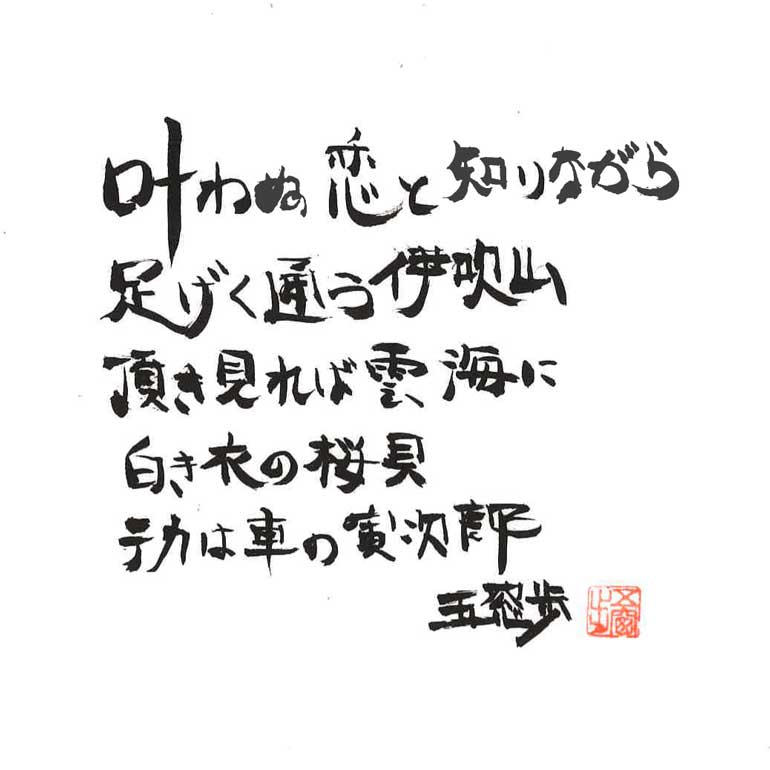 叶わぬ恋と知りながら
足げく通う伊吹山
頂き見れば雲海に
白き衣の桜貝
テカは車の寅次郎
五窓歩